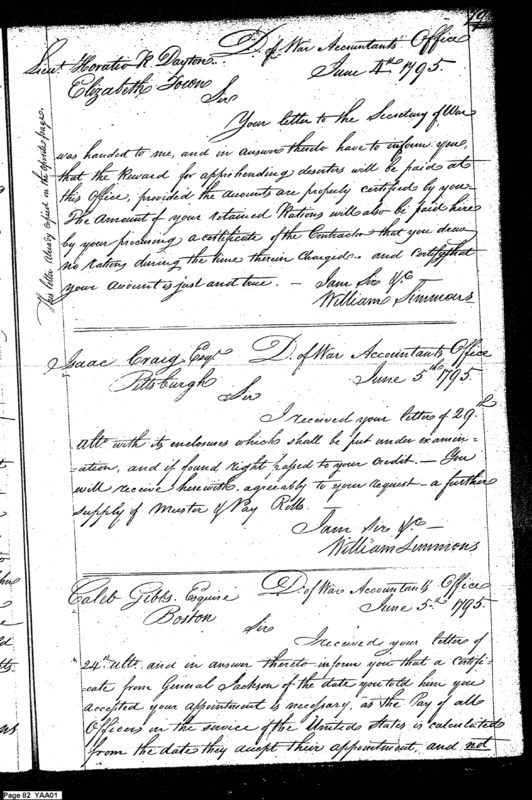 79
Lieut. Horatio R Dayton D. of War Accountants' Office
Elizabeth Town June 4th 1795.
Sir
Your letter to the Secretary of War
was handed to me, and in answer thereto have to inform you,
that the Reward for apprehending deserters will be paid at
this Office, provided the Accounts are properly certified by you
The Amount of your Retained Rations will also be paid here
by your procuring a certificate of the Contractor that you drew
no Rations during the time therein Charged. and certify that
your Account is just and true. — I am Sir &c
William Simmons
This letter already copied on the opposite page.
Isaac Craig Esqr. D. of War Accountants Office
Pittsburgh June 5th 1795.
Sir
I received your letter of 29th
ulto. with its enclosures which shall be put under examin-
-ation, and if found right passed to your credit. — You
will receive herewith, agreeably to your request - a further
supply of Muster & Pay Rolls —
I am Sir &c —
William Simmons
Caleb Gibbs Esquire D. of War Accountants' Office
Boston June 5th 1795.
Sir
I received your letter of
24th ulto. and in answer thereto inform you that a Certifi-
-cate from General Jackson of the date you told him you
accepted your appointment is necessary, as the Pay of all
Officers in the service of the United States is calculated
from the date they accept their appointment, and not
Page 82 YAA01